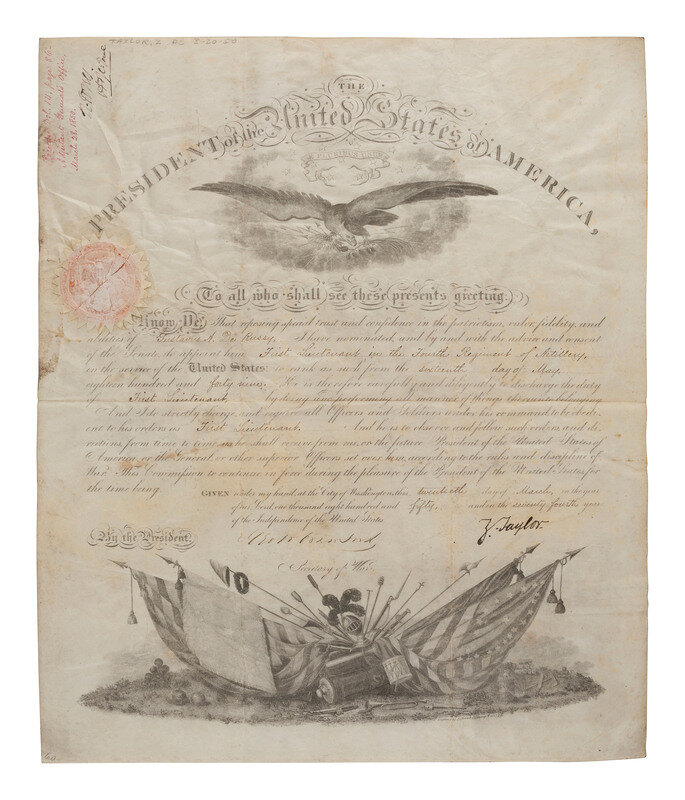 TAYLOR, Z AC 3-20-50
Adjutant General's Office,
March 28, 1850.
THE
PRESIDENT of the United States of AMERICA,
E PLURIBUS UNUM
To all who shall see these presents greeting.
Know Ye, That reposing special trust and confidence in the patriotism, valor, fidelity, and
abilities of Gustavus A. De Russy, I have nominated, and by and with the advice and consent
of the Senate, do appoint him First Lieutenant in the Fourth Regiment of Artillery,
in the service of the United States: to rank as such from the sixteenth day of May
eighteen hundred and forty seven. He is therefore carefully and diligently to discharge the duty
of First Lieutenant by doing and performing all manner of things thereunto belonging.
And I do strictly charge, and require all Officers and Soldiers under his command, to be obedi-
ent to his orders as First Lieutenant. And he is to observe and follow such orders, and di-
rections, from time to time, as he shall receive from me, or the future President of the United States of
America, or the General or other superior Officers set over him, according to the rules and discipline of
War. This Commission to continue in force during the pleasure of the President of the United States, for
the time being.
GIVEN under my hand, at the City of Washington, this twentieth day of March, in the year
of our Lord one thousand eight hundred and fifty, and in the seventy fourth year
of the Independence of the United States.
By the President,
Z. Taylor.
Secretary of War.